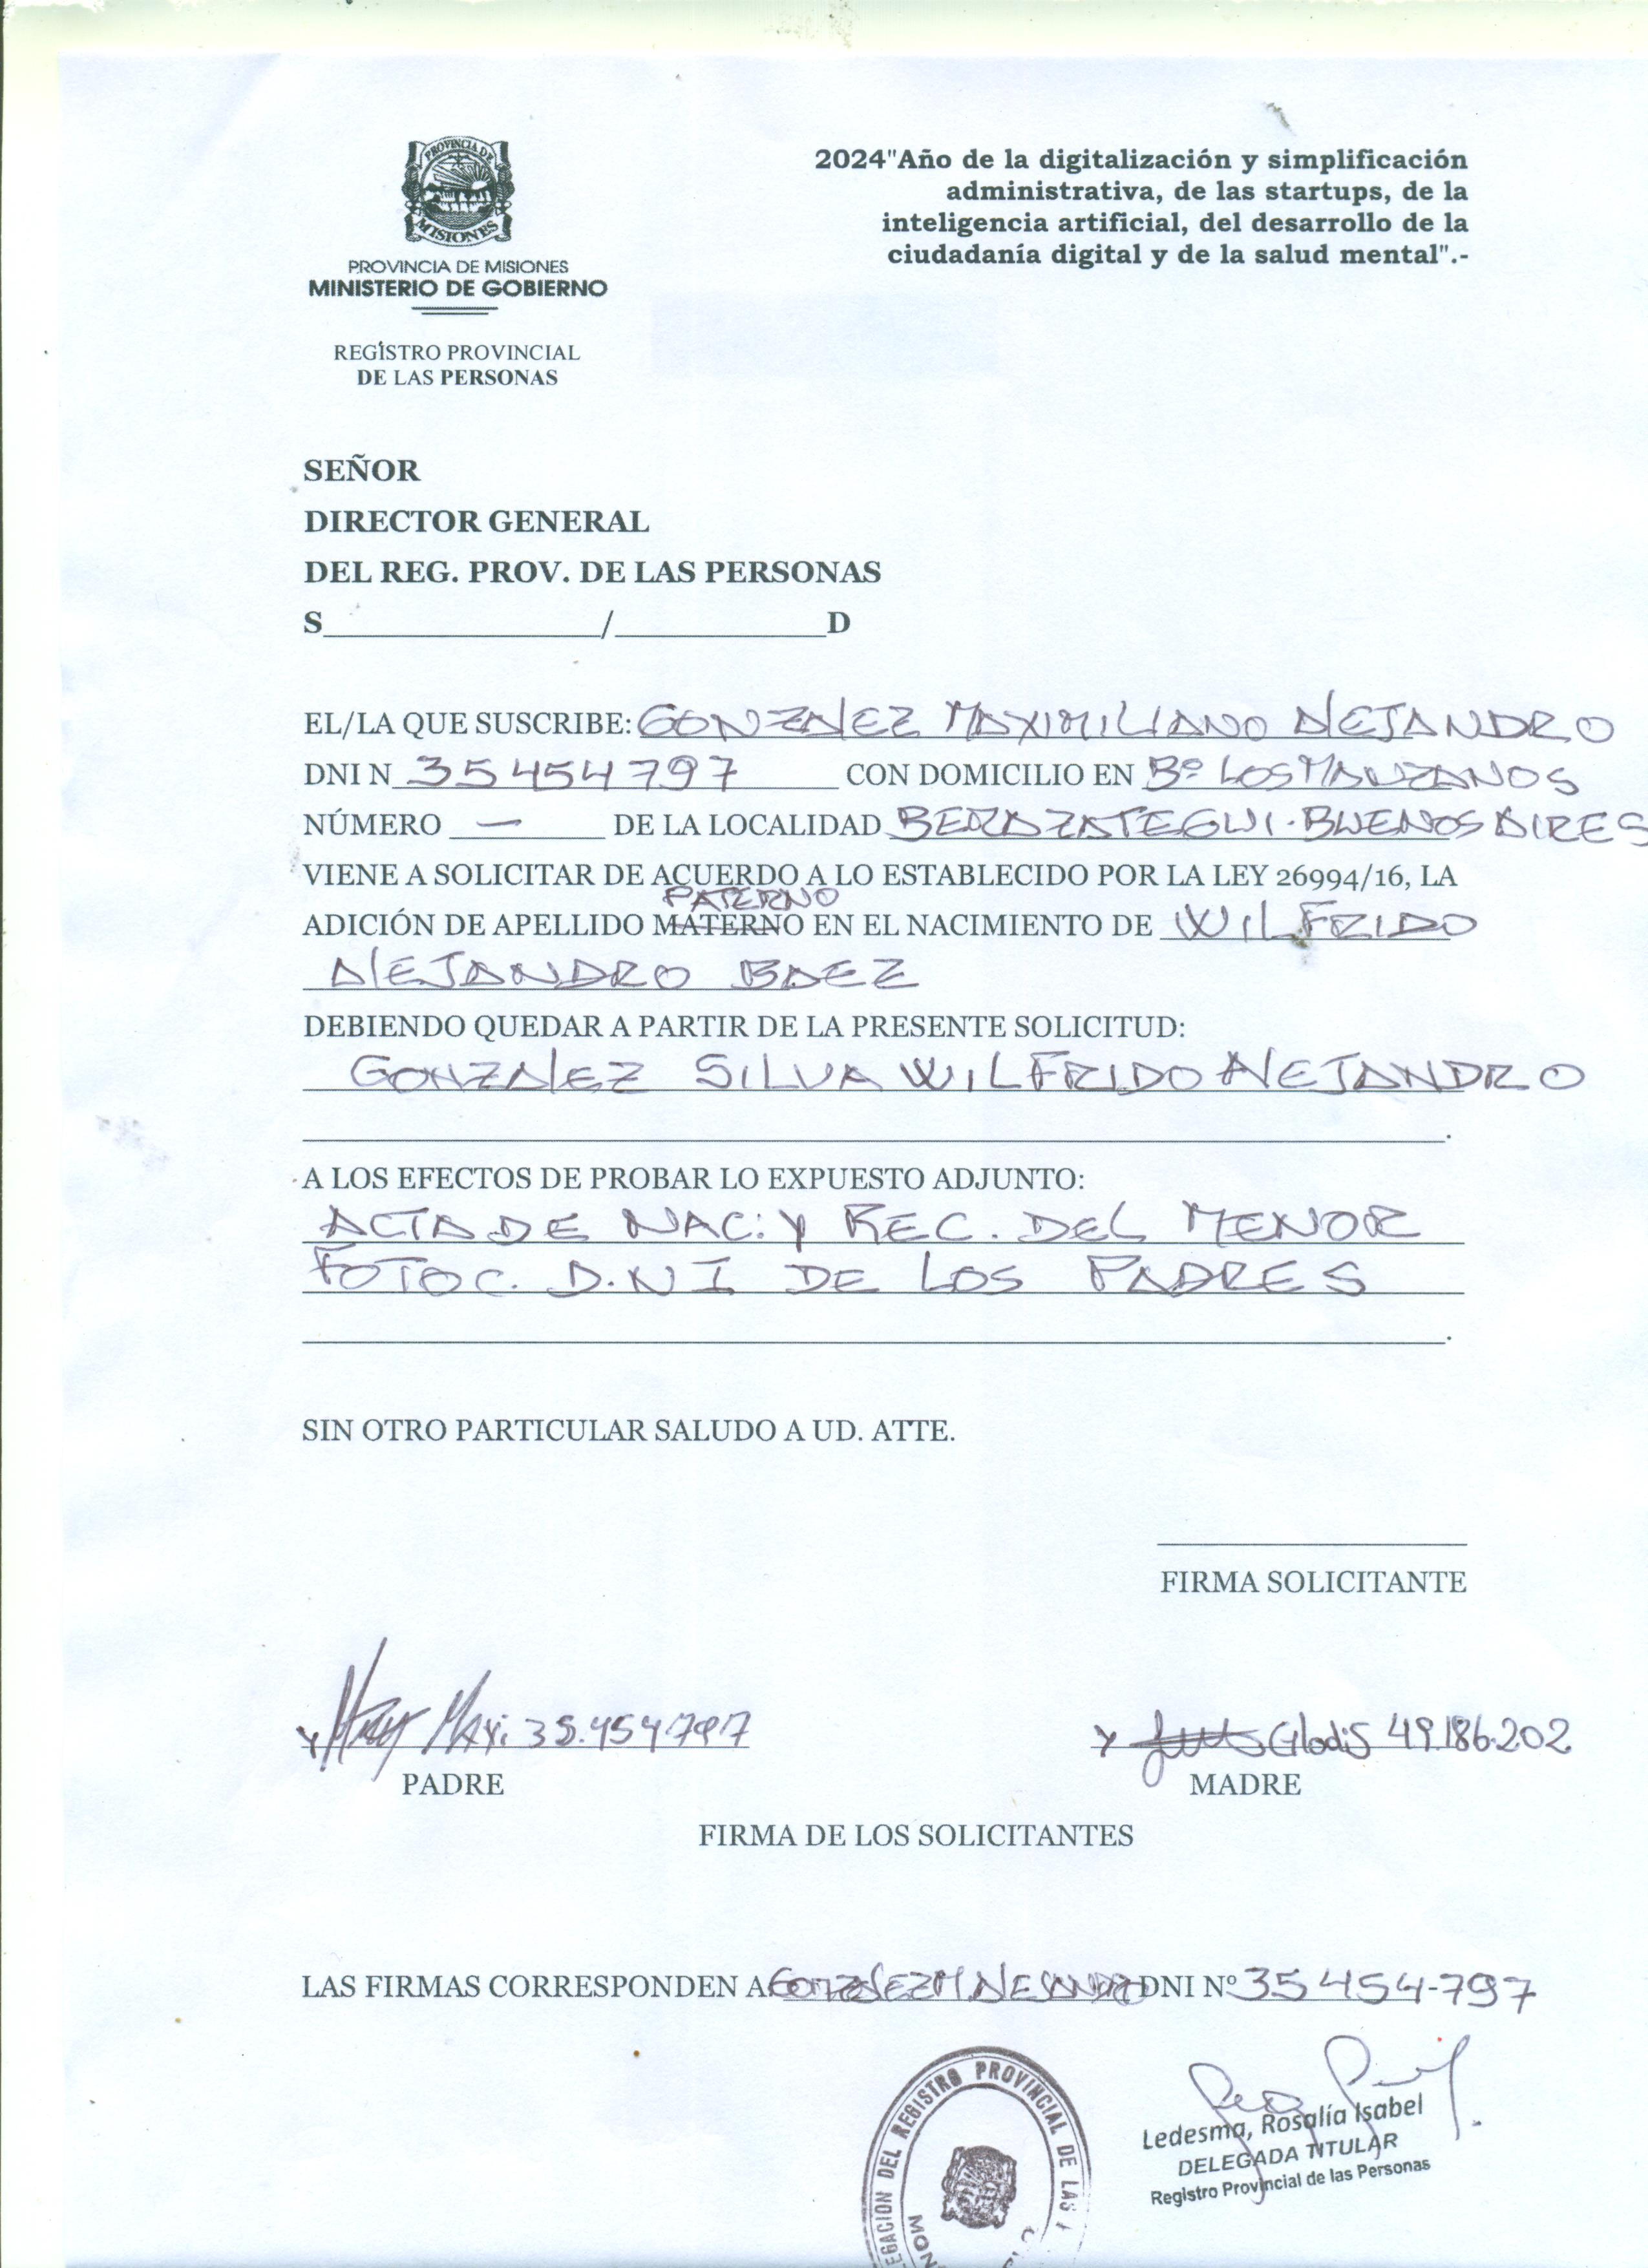 PROVINCIA DE
MISIONES
PROVINCIA DE MISIONES
MINISTERIO DE GOBIERNO
REGISTRO PROVINCIAL
DE LAS PERSONAS
2024"Año de la digitalización y simplificación
administrativa, de las startups, de la
inteligencia artificial, del desarrollo de la
ciudadanía digital y de la salud mental".-
SEÑOR
DIRECTOR GENERAL
DEL REG. PROV. DE LAS PERSONAS
S__________________/______________D
EL/LA QUE SUSCRIBE: GONZALEZ MAXIMILIANO ALEJANDRO
DNI N 35454797 CON DOMICILIO EN Bº LOS MANZANOS
NÚMERO — DE LA LOCALIDAD BERAZATEGUI. BUENOS AIRES
VIENE A SOLICITAR DE ACUERDO A LO ESTABLECIDO POR LA LEY 26994/16, LA
PATERNO
ADICIÓN DE APELLIDO MATERNO EN EL NACIMIENTO DE WILFRIDO
ALEJANDRO BAEZ
DEBIENDO QUEDAR A PARTIR DE LA PRESENTE SOLICITUD:
GONZALEZ SILVA WILFRIDO ALEJANDRO
A LOS EFECTOS DE PROBAR LO EXPUESTO ADJUNTO:
ACTA DE NAC: Y REC. DEL MENOR
FOTOC. D.NI DE LOS PADRES
SIN OTRO PARTICULAR SALUDO A UD. ATTE.
FIRMA SOLICITANTE
Maxi 35.454797
Gladis 49.186.202
PADRE
MADRE
FIRMA DE LOS SOLICITANTES
LAS FIRMAS CORRESPONDEN A GONZALEZ M ALEJANDRO DNI Nº 35454-797
DEL REGISTRO PROVINCIAL DE LAS
Ledesma, Rosalía Isabel
DELEGADA TITULAR
Registro Provincial de las Personas